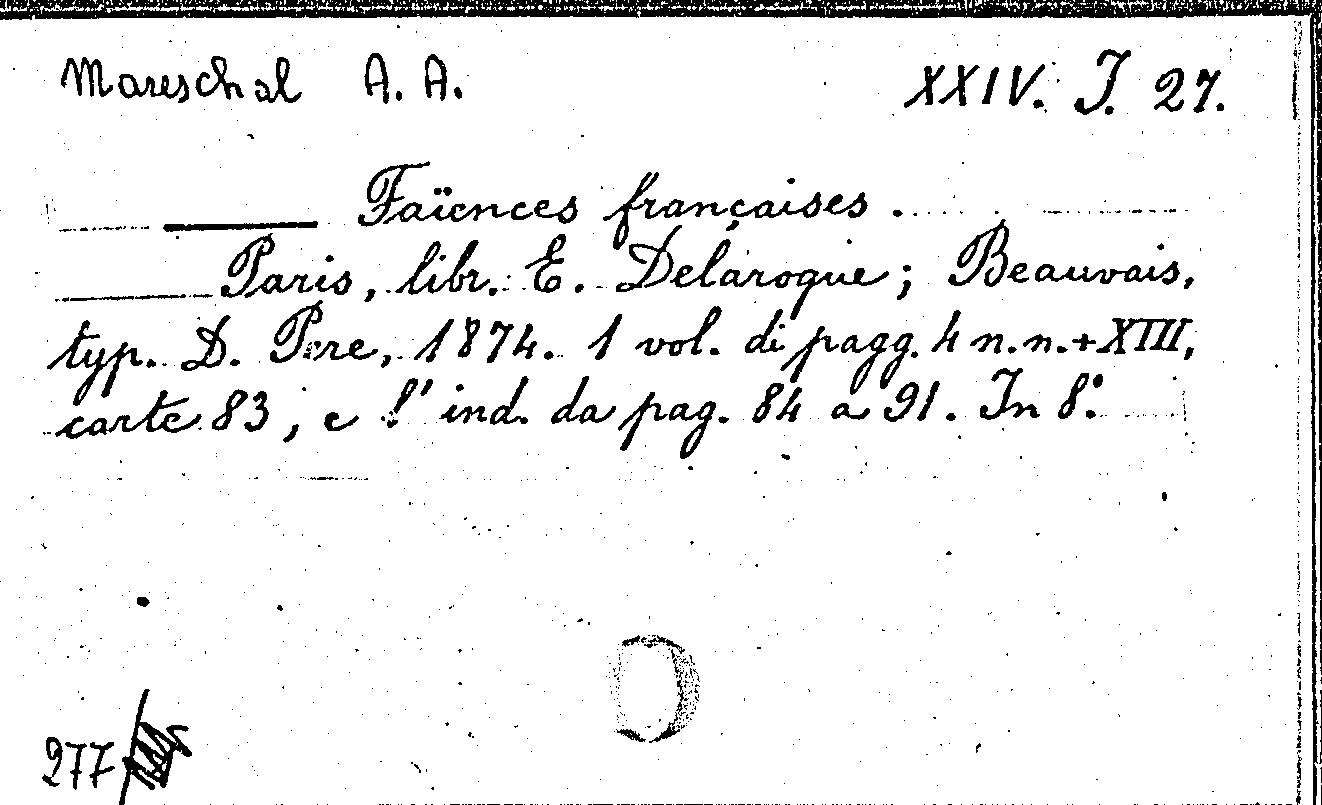 Mareschal A. A. XXIV. J. 27.
Faïences françaises.
Paris, libr. E. Delaroque; Beauvais,
typ. D. Pere, 1874. 1 vol. di pagg. 4 n.n.+XIII,
carte 83, e l' ind. da pag. 84 a 91. In 8.°
277/